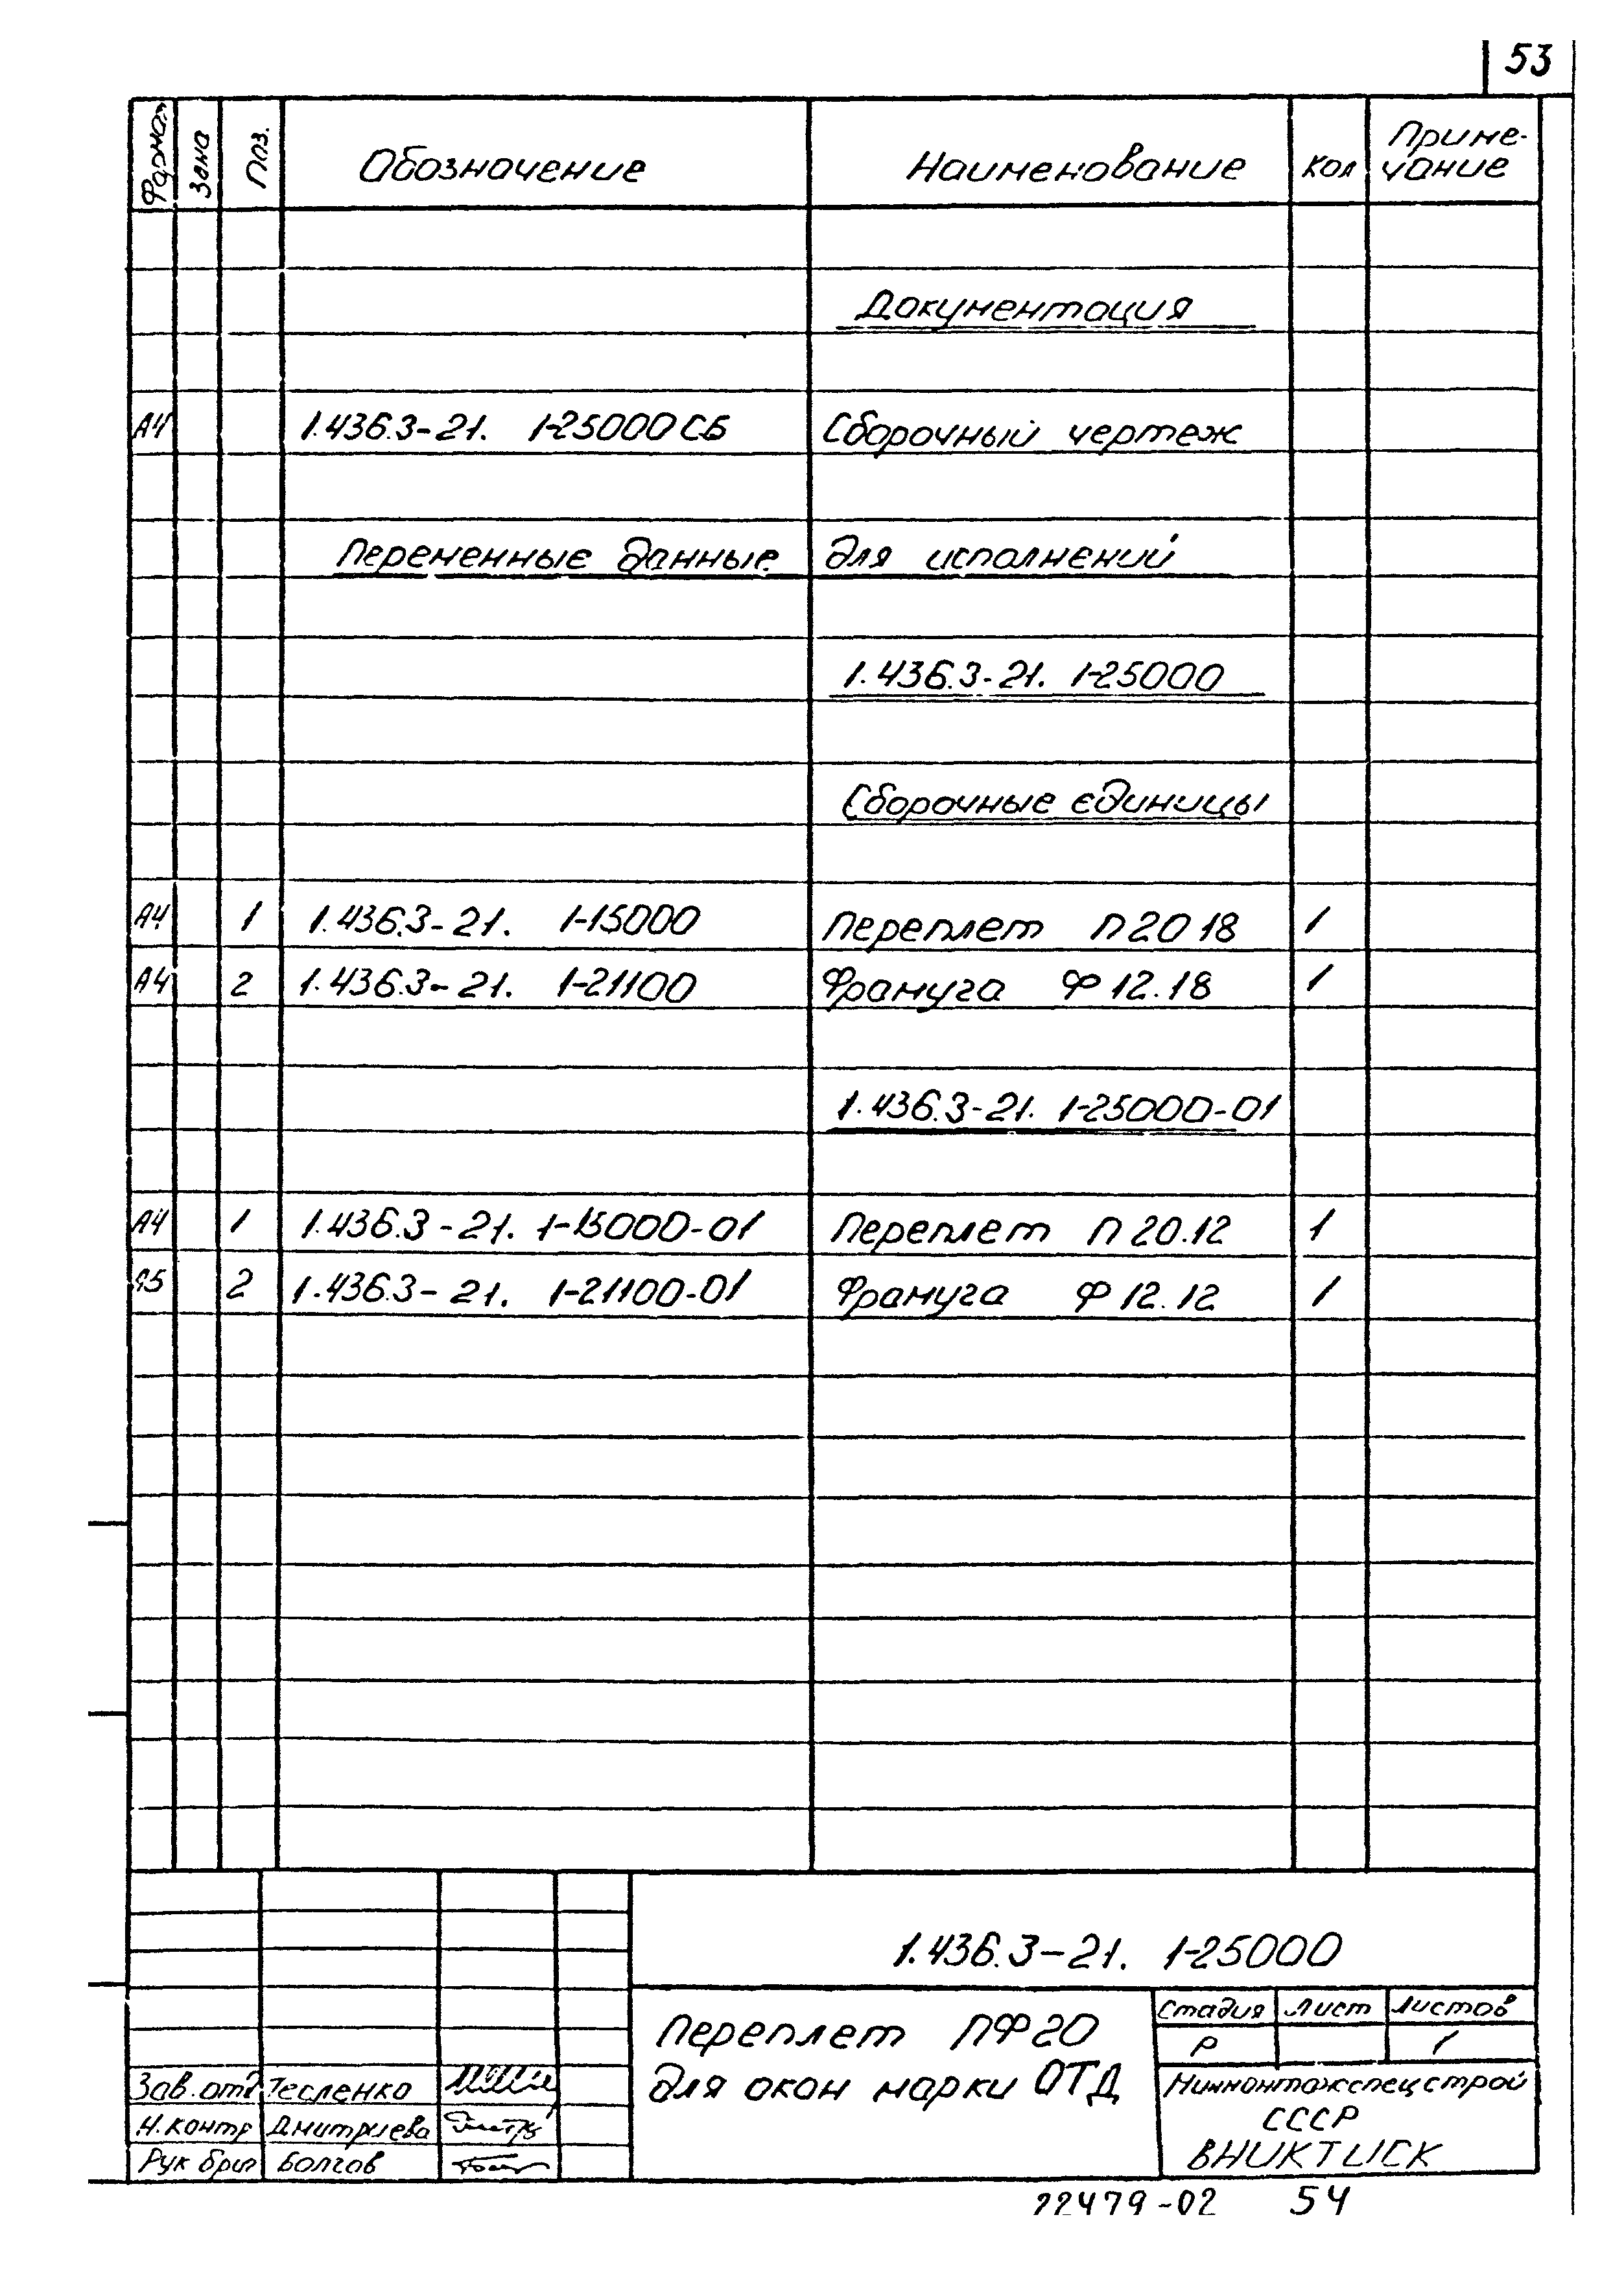 53
Формат Зона Поз. Обозначение Наименование Кол Приме-
чание
Документация
А4 1.436.3-21. 1-25000 СБ Сборочный чертеж
Переменные данные для исполнений
1.436.3-21. 1-25000
Сборочные единицы
А4 1 1.436.3-21. 1-15000 Переплет П 20 18 1
А4 2 1.436.3-21. 1-21100 Фрамуга Ф 12.18 1
1.436.3-21. 1-25000-01
А4 1 1.436.3-21. 1-15000-01 Переплет П 20.12 1
А5 2 1.436.3-21. 1-21100-01 Фрамуга Ф 12.12 1
1.436.3-21. 1-25000
Переплет ПФ20
для окон марки ОТД
Стадия Лист Листов
Р 1
Минмонтажспецстрой
СССР
ВНИКТИСК
Зав. отд Тесленко
Н. контр Дмитриева
Рук бриг Болгов
22479-02 54